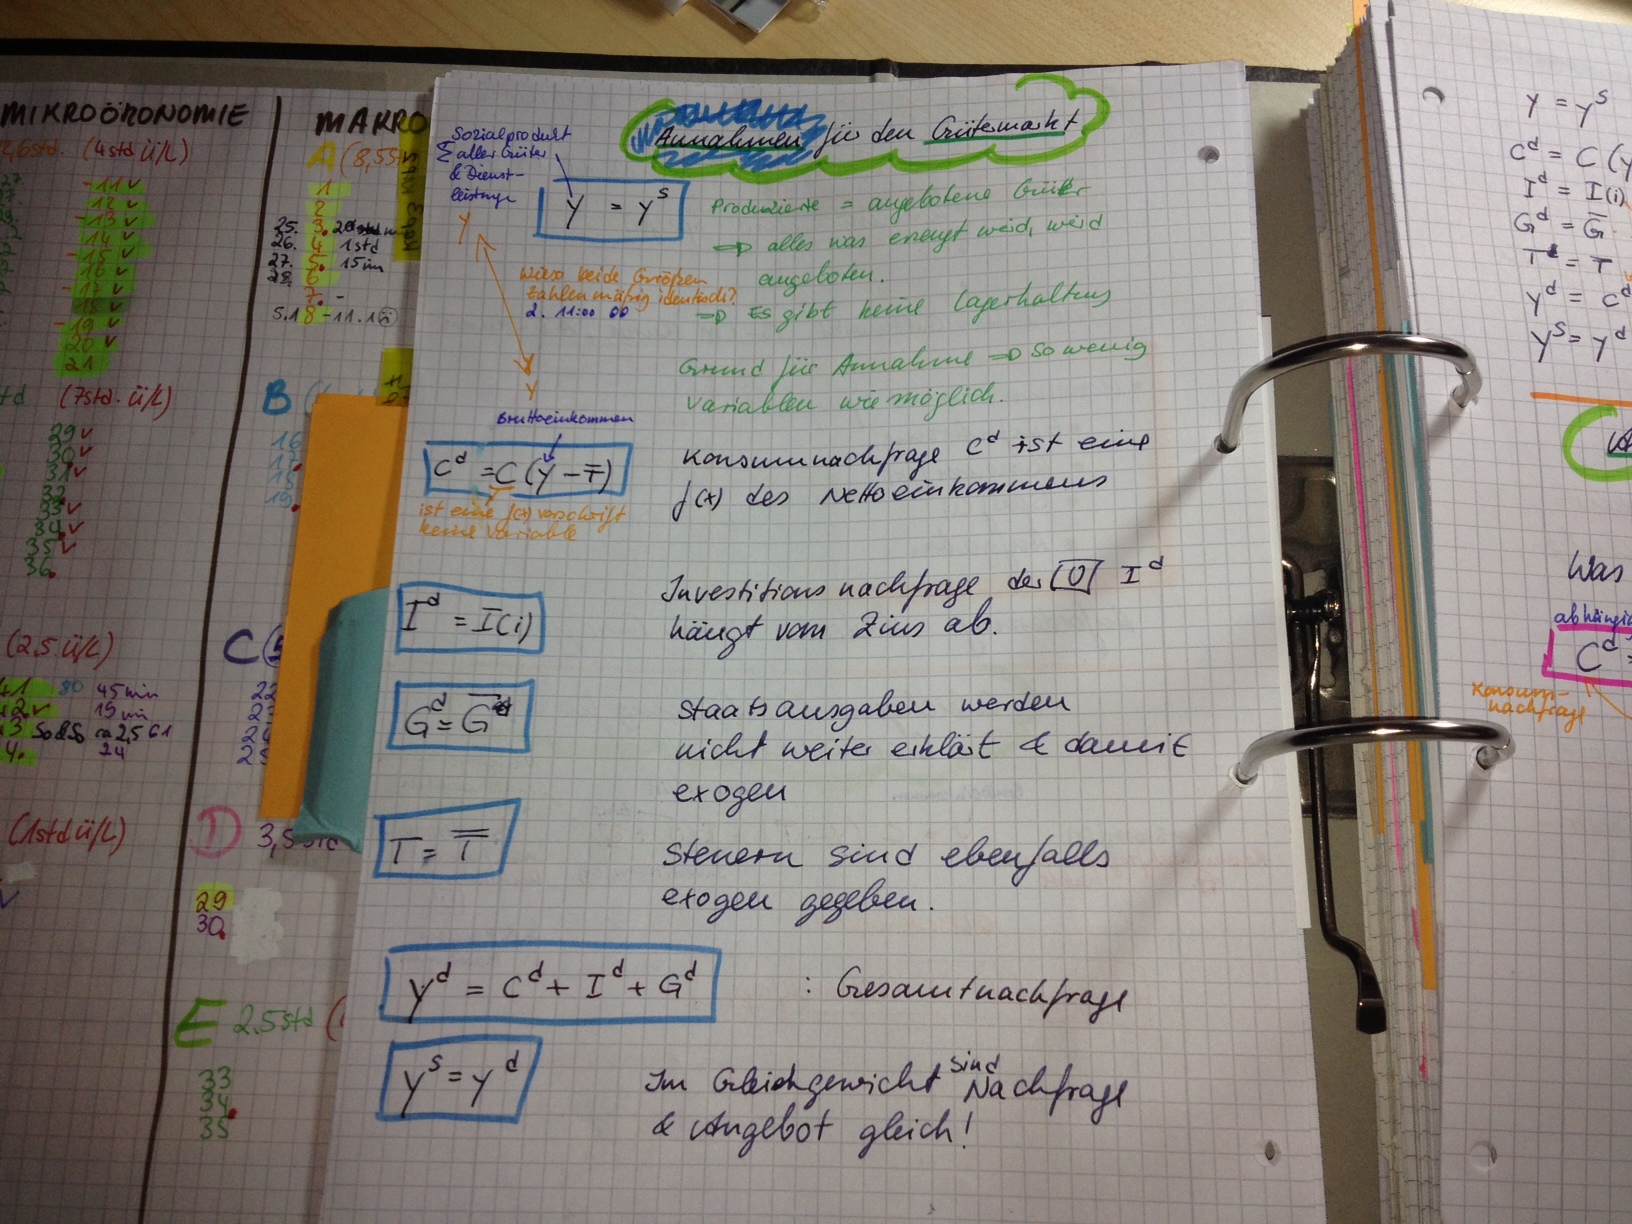 MIKROÖKONOMIE
MAKRO
(4std Ü/L)
A (8,55
11 ✓
12 ✓
13 ✓
14 ✓
15 ✓
16 ✓
17 ✓
18 ✓
19 ✓
20 ✓
21
1
2
25. 3.
26. 4 1std
27. 5. 15min
28. 6
7. -
5.1 8 - 11.1
(7std. Ü/L)
B
29 ✓
30 ✓
31 ✓
32
33 ✓
34 ✓
35 ✓
36.
(2,5 Ü/L)
C
41 80 45min
15min
So&So ca 2,5 61
4. 24
(1std Ü/L)
D 3,5 std
29
30.
E 2,5std
33
34.
35
Annahmen für den Gütermarkt
Sozialprodukt
Σ aller Güter
& Dienst-
leistunge
Y
Y = Y^s
Produzierte = angebotene Güter
=> alles was erzeugt weid, weid
angeboten.
=> Es gibt keine Lagerhaltung
Wieso beide Größen
zahlenmäßig identisch?
2. 11:00 00
Y
Grund für Annahme => So wenig
Variablen wie möglich.
Bruttoeinkommen
C^d = C (Y - T̅)
ist eine f(x) vorschrift
keine Variable
Konsumnachfrage C^d ist eine
f(x) des Nettoeinkommens
I^d = I(i)
Investitionsnachfrage der U I^d
hängt vom Zins ab.
G^d = G̅
Staatsausgaben werden
nicht weiter erklärt & damit
exogen
T = T̅
Steuern sind ebenfalls
exogen gegeben.
Y^d = C^d + I^d + G^d : Gesamtnachfrage
Y^s = Y^d
Im Gleichgewicht sind Nachfrage
& Angebot gleich!
Y = Y^s
C^d = C (Y
I^d = I(i)
G^d = G̅
T = T
Y^d = C^d
Y^s = Y^d
Was
abhängig
C^d =
Konsum-
nachfrage